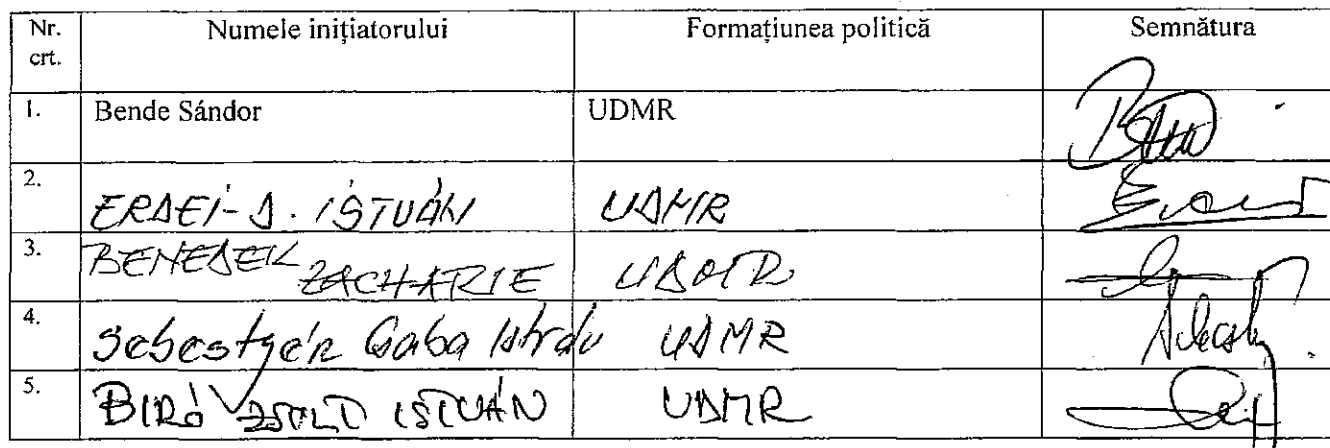 Nr. crt. Numele inițiatorului Formațiunea politică Semnătura
1. Bende Sándor UDMR
2. ERDEI-D. ISTVÁN UDMR
3. BENEDEK ZACHARIE UDMR
4. Sebestyén Csaba István UDMR
5. BIRÓ ZSOLT ISTVÁN UDMR